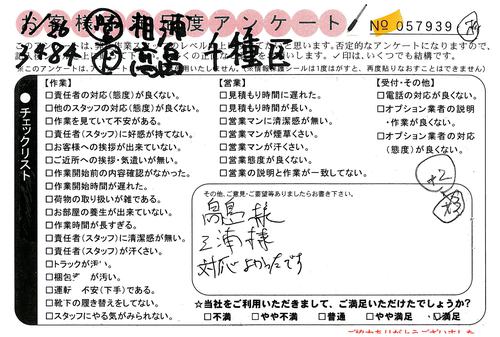 お客様満足度アンケート
1/26 営 相浦
3184 作 高島
千種区
No 057939
※このアンケートは、
【作業】
□責任者の対応(態度)が良くない。
□他のスタッフの対応(態度)が良くない。
□作業を見ていて不安がある。
□責任者(スタッフ)に好感が持てない。
□お客様への挨拶が出来ていない。
□ご近所への挨拶・気遣いが無い。
□作業開始前の内容確認がなかった。
□作業開始時間が遅れた。
□荷物の取り扱いが雑である。
□お部屋の養生が出来ていない。
□作業時間が長すぎる。
□責任者(スタッフ)に清潔感が無い。
□責任者(スタッフ)が汗くさい。
□トラックが汚い。
□梱包 が汚い。
□運転 不安(下手)である。
□靴下の履き替えをしてない。
□スタッフにやる気がみられない。
【営業】
□見積もり時間に遅れた。
□見積もり時間が長い。
□営業マンに清潔感が無い。
□営業マンが煙草くさい。
□営業マンが汗くさい。
□営業態度が良くない。
□営業の説明と作業が一致してない。
【受付・その他】
□電話の対応が良くない。
□オプション業者の説明
・作業が良くない。
□オプション業者の対応
(態度)が良くない。
チェックリスト
その他、ご意見・ご要望等ありましたらお書き下さい。
高島様
三浦様
対応よかったです
+2
☆当社をご利用いただきまして、ご満足いただけたでしょうか?
□不満 □やや不満 □普通 □やや満足 □満足
ご協力ありがとうございました